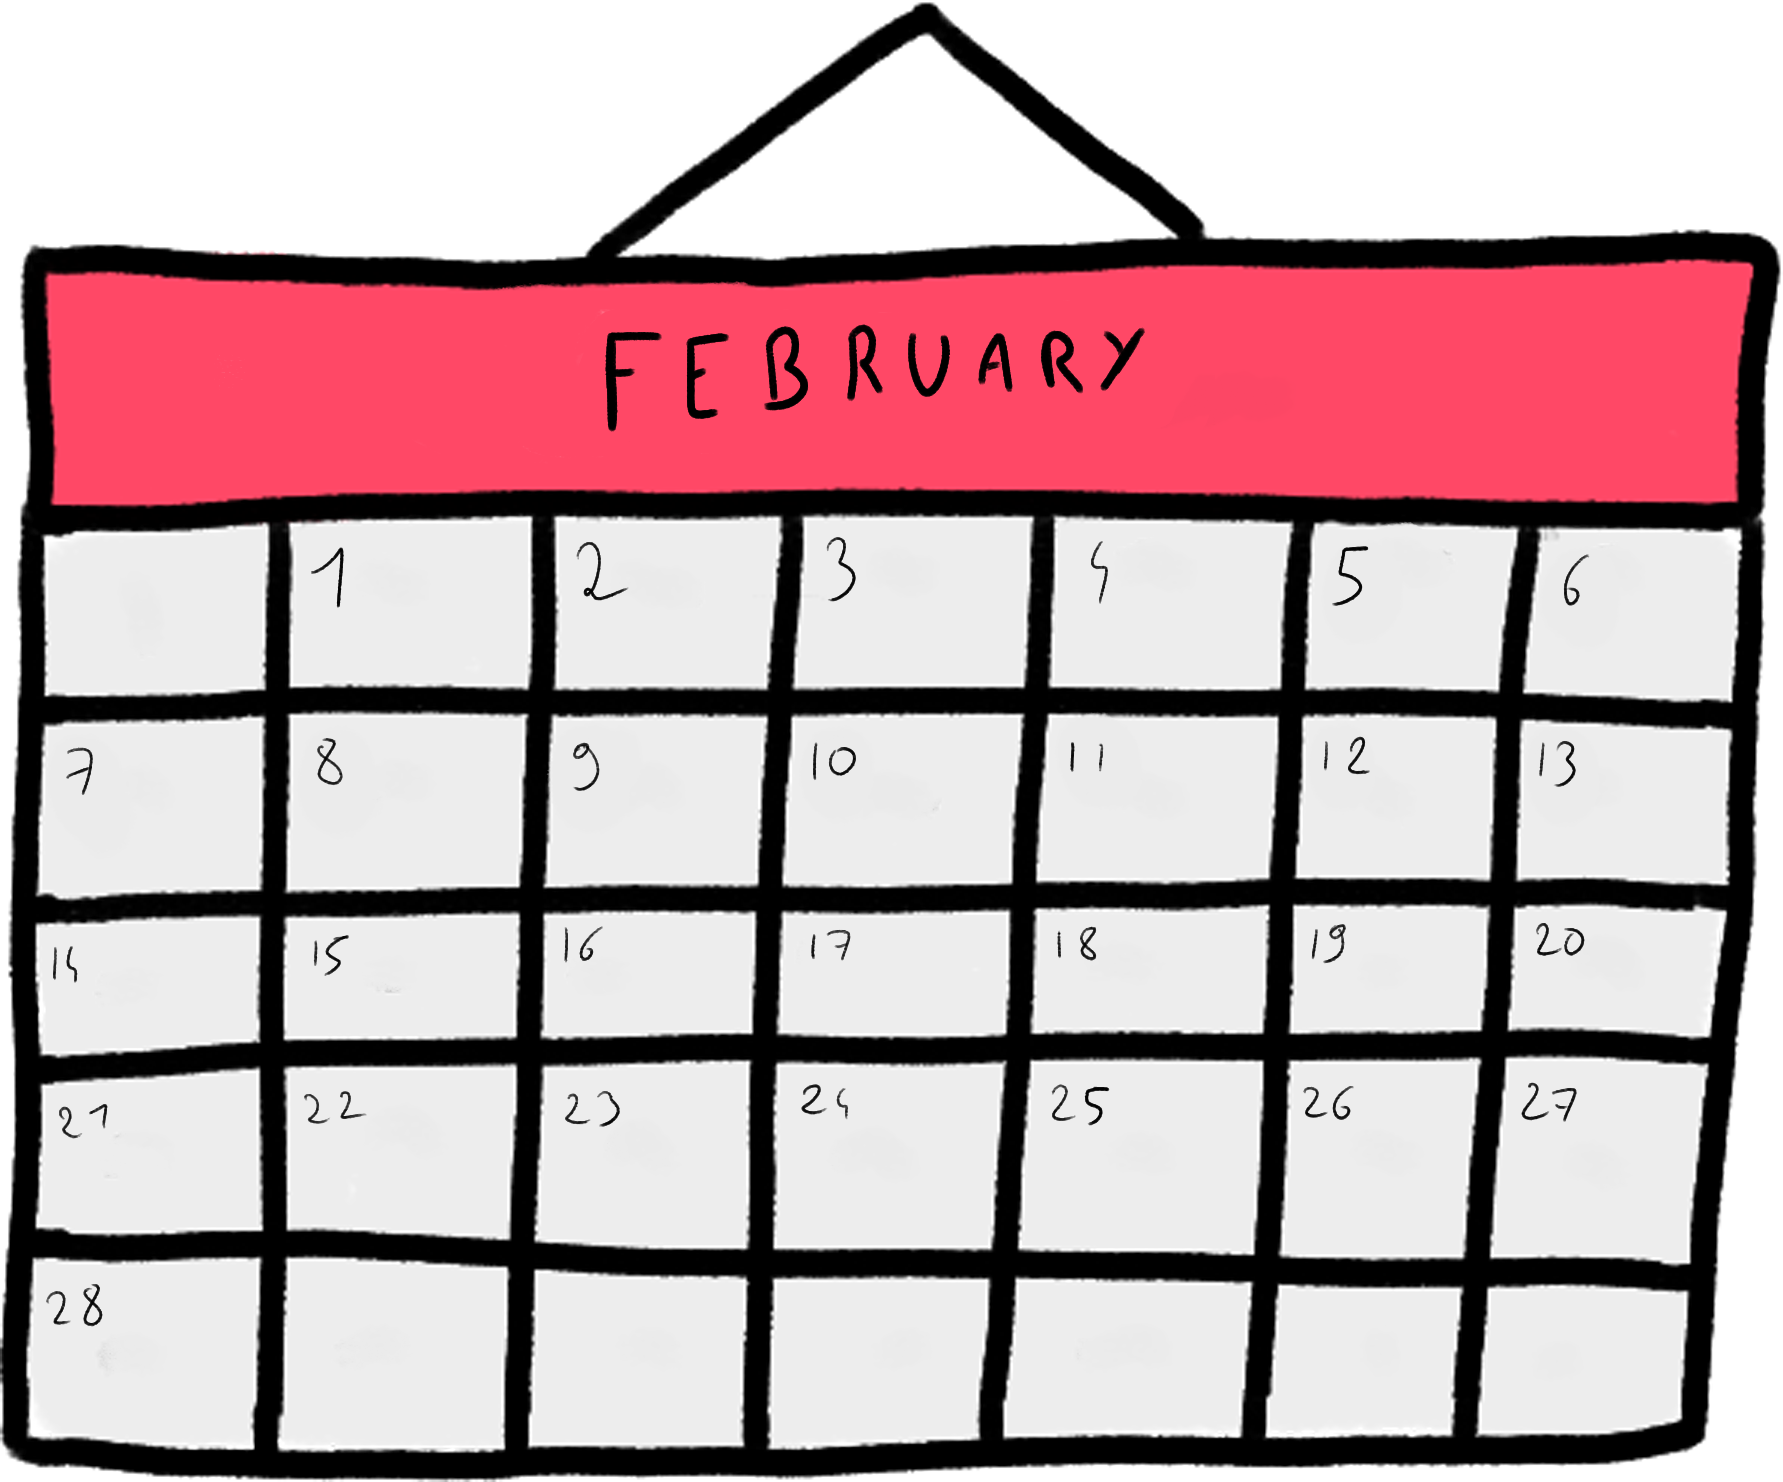 FEBRUARY
1 2 3 4 5 6
7 8 9 10 11 12 13
14 15 16 17 18 19 20
21 22 23 24 25 26 27
28